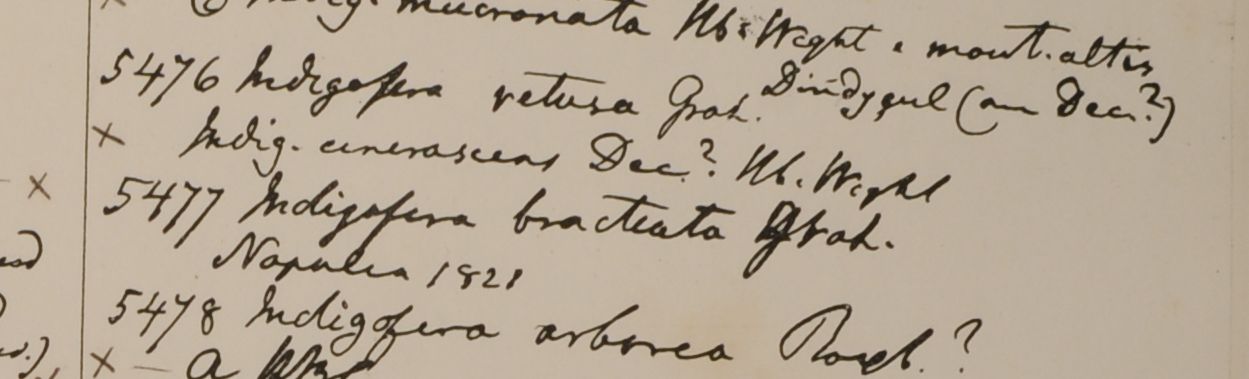 Indig. mucronata Hb. Wight e mont. altis
5476 Indigofera retusa Grah. Dindygul (an Dec.?)
× Indig. cinerascens Dec.? Hb. Wight
5477 Indigofera bracteata Grah.
Napalia 1821
5478 Indigofera arborea Roxb.?
× — a